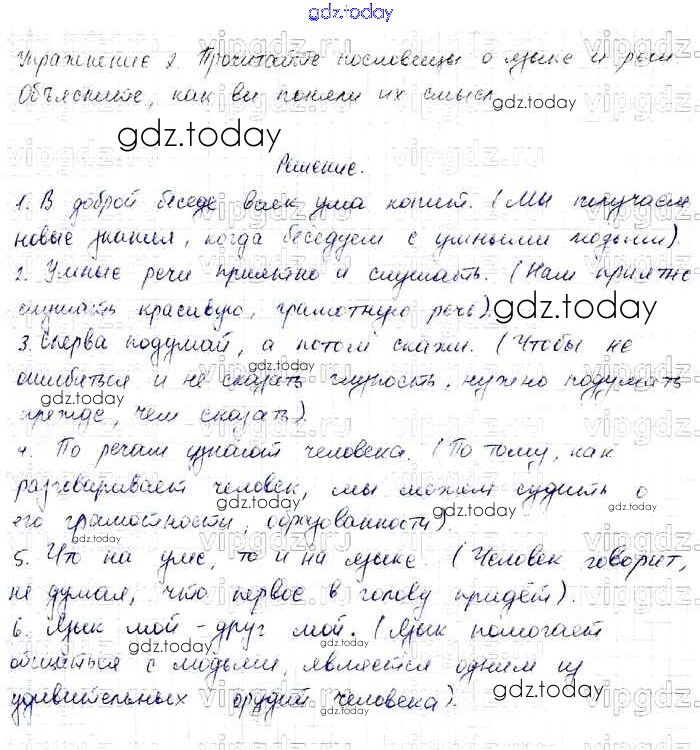 gdz.today
Упражнение 2. Прочитайте пословицы о языке и речи.
Объясните, как вы поняли их смысл.
gdz.today
gdz.today
Решение.
1. В доброй беседе всяк ума копит. (Мы получаем
новые знания, когда беседуем с умными людьми).
2. Умные речи приятно и слушать. (Нам приятно
слушать красивую, грамотную речь).
gdz.today
3. Сперва подумай, а потом скажи. (Чтобы не
ошибиться и не сказать глупость, нужно подумать
прежде, чем сказать).
gdz.today
4. По речам узнают человека. (По тому, как
разговаривает человек, мы можем судить о
его грамотности, образованности).
gdz.today
5. Что на уме, то и на языке. (Человек говорит,
не думая, что первое в голову придёт).
gdz.today
6. Язык мой - друг мой. (Язык помогает
общаться с людьми, является одним из
удивительных орудий человека).
gdz.today